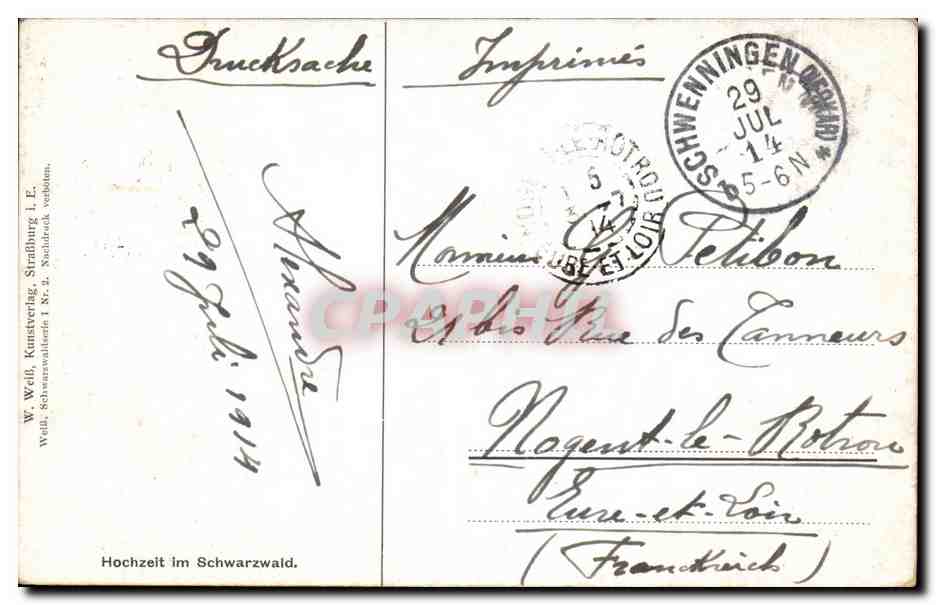 Drucksache
Imprimés
SCHWENNINGEN (NECKAR) *
29
JUL
14
5-6 N
LE-ROTROU
5
7
14
EURE-ET-LOIR
Alexandre
29 Juli 1914
Monsieur Petibon
21 bis Rue des Tanneurs
Nogent-le-Rotrou
Eure-et-Loir
(Franckreich)
W. Weiß, Kunstverlag, Straßburg i. E.
Weiß, Schwarzwaldserie I Nr. 2. Nachdruck verboten.
Hochzeit im Schwarzwald.
CPAPHIL